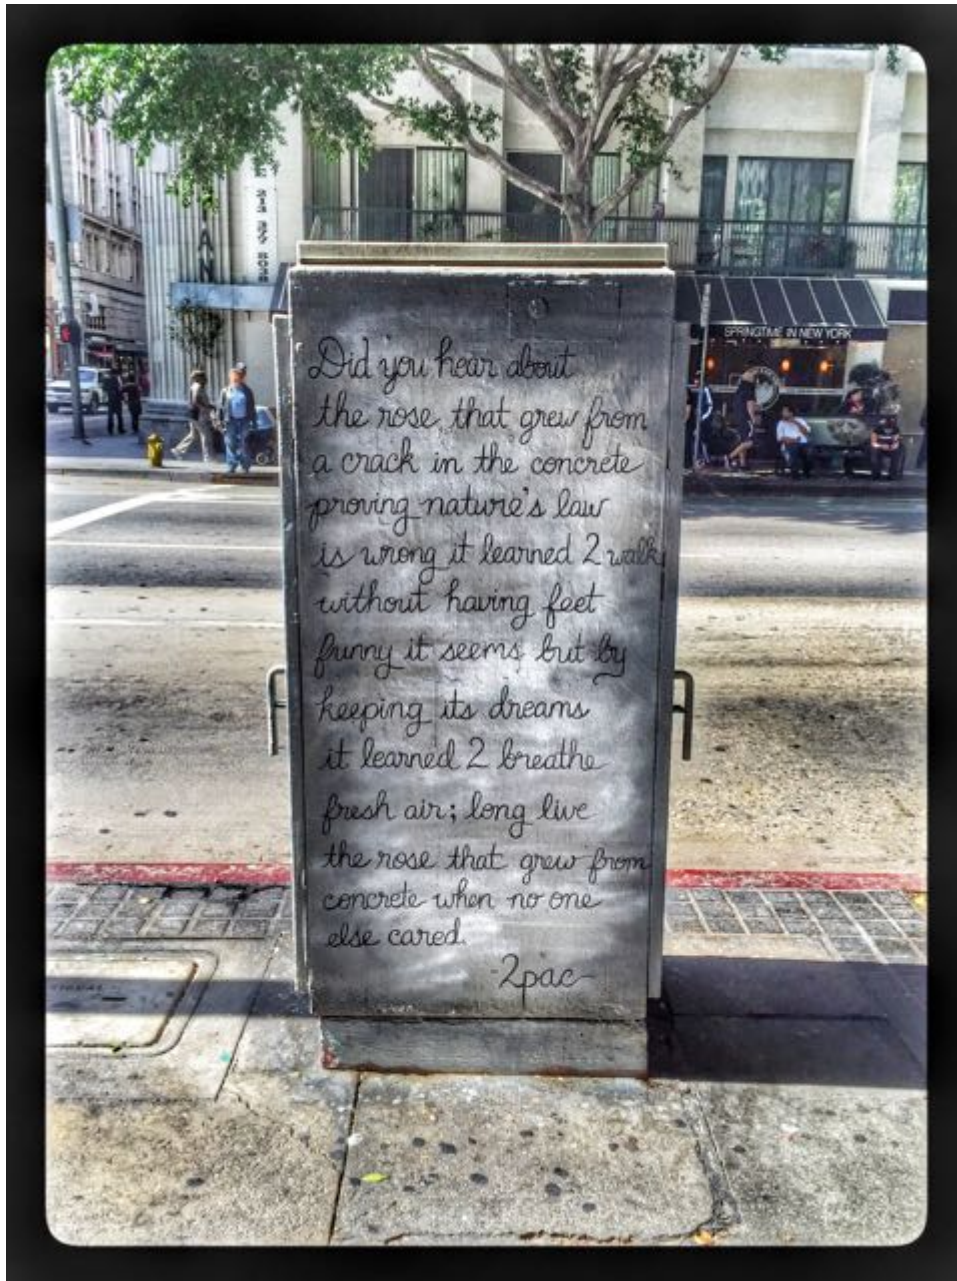 Did you hear about
the rose that grew from
a crack in the concrete
proving nature's law
is wrong it learned 2 walk
without having feet
funny it seems but by
keeping its dreams
it learned 2 breathe
fresh air; long live
the rose that grew from
concrete when no one
else cared.
-2pac-
SPRINGTIME IN NEW YORK